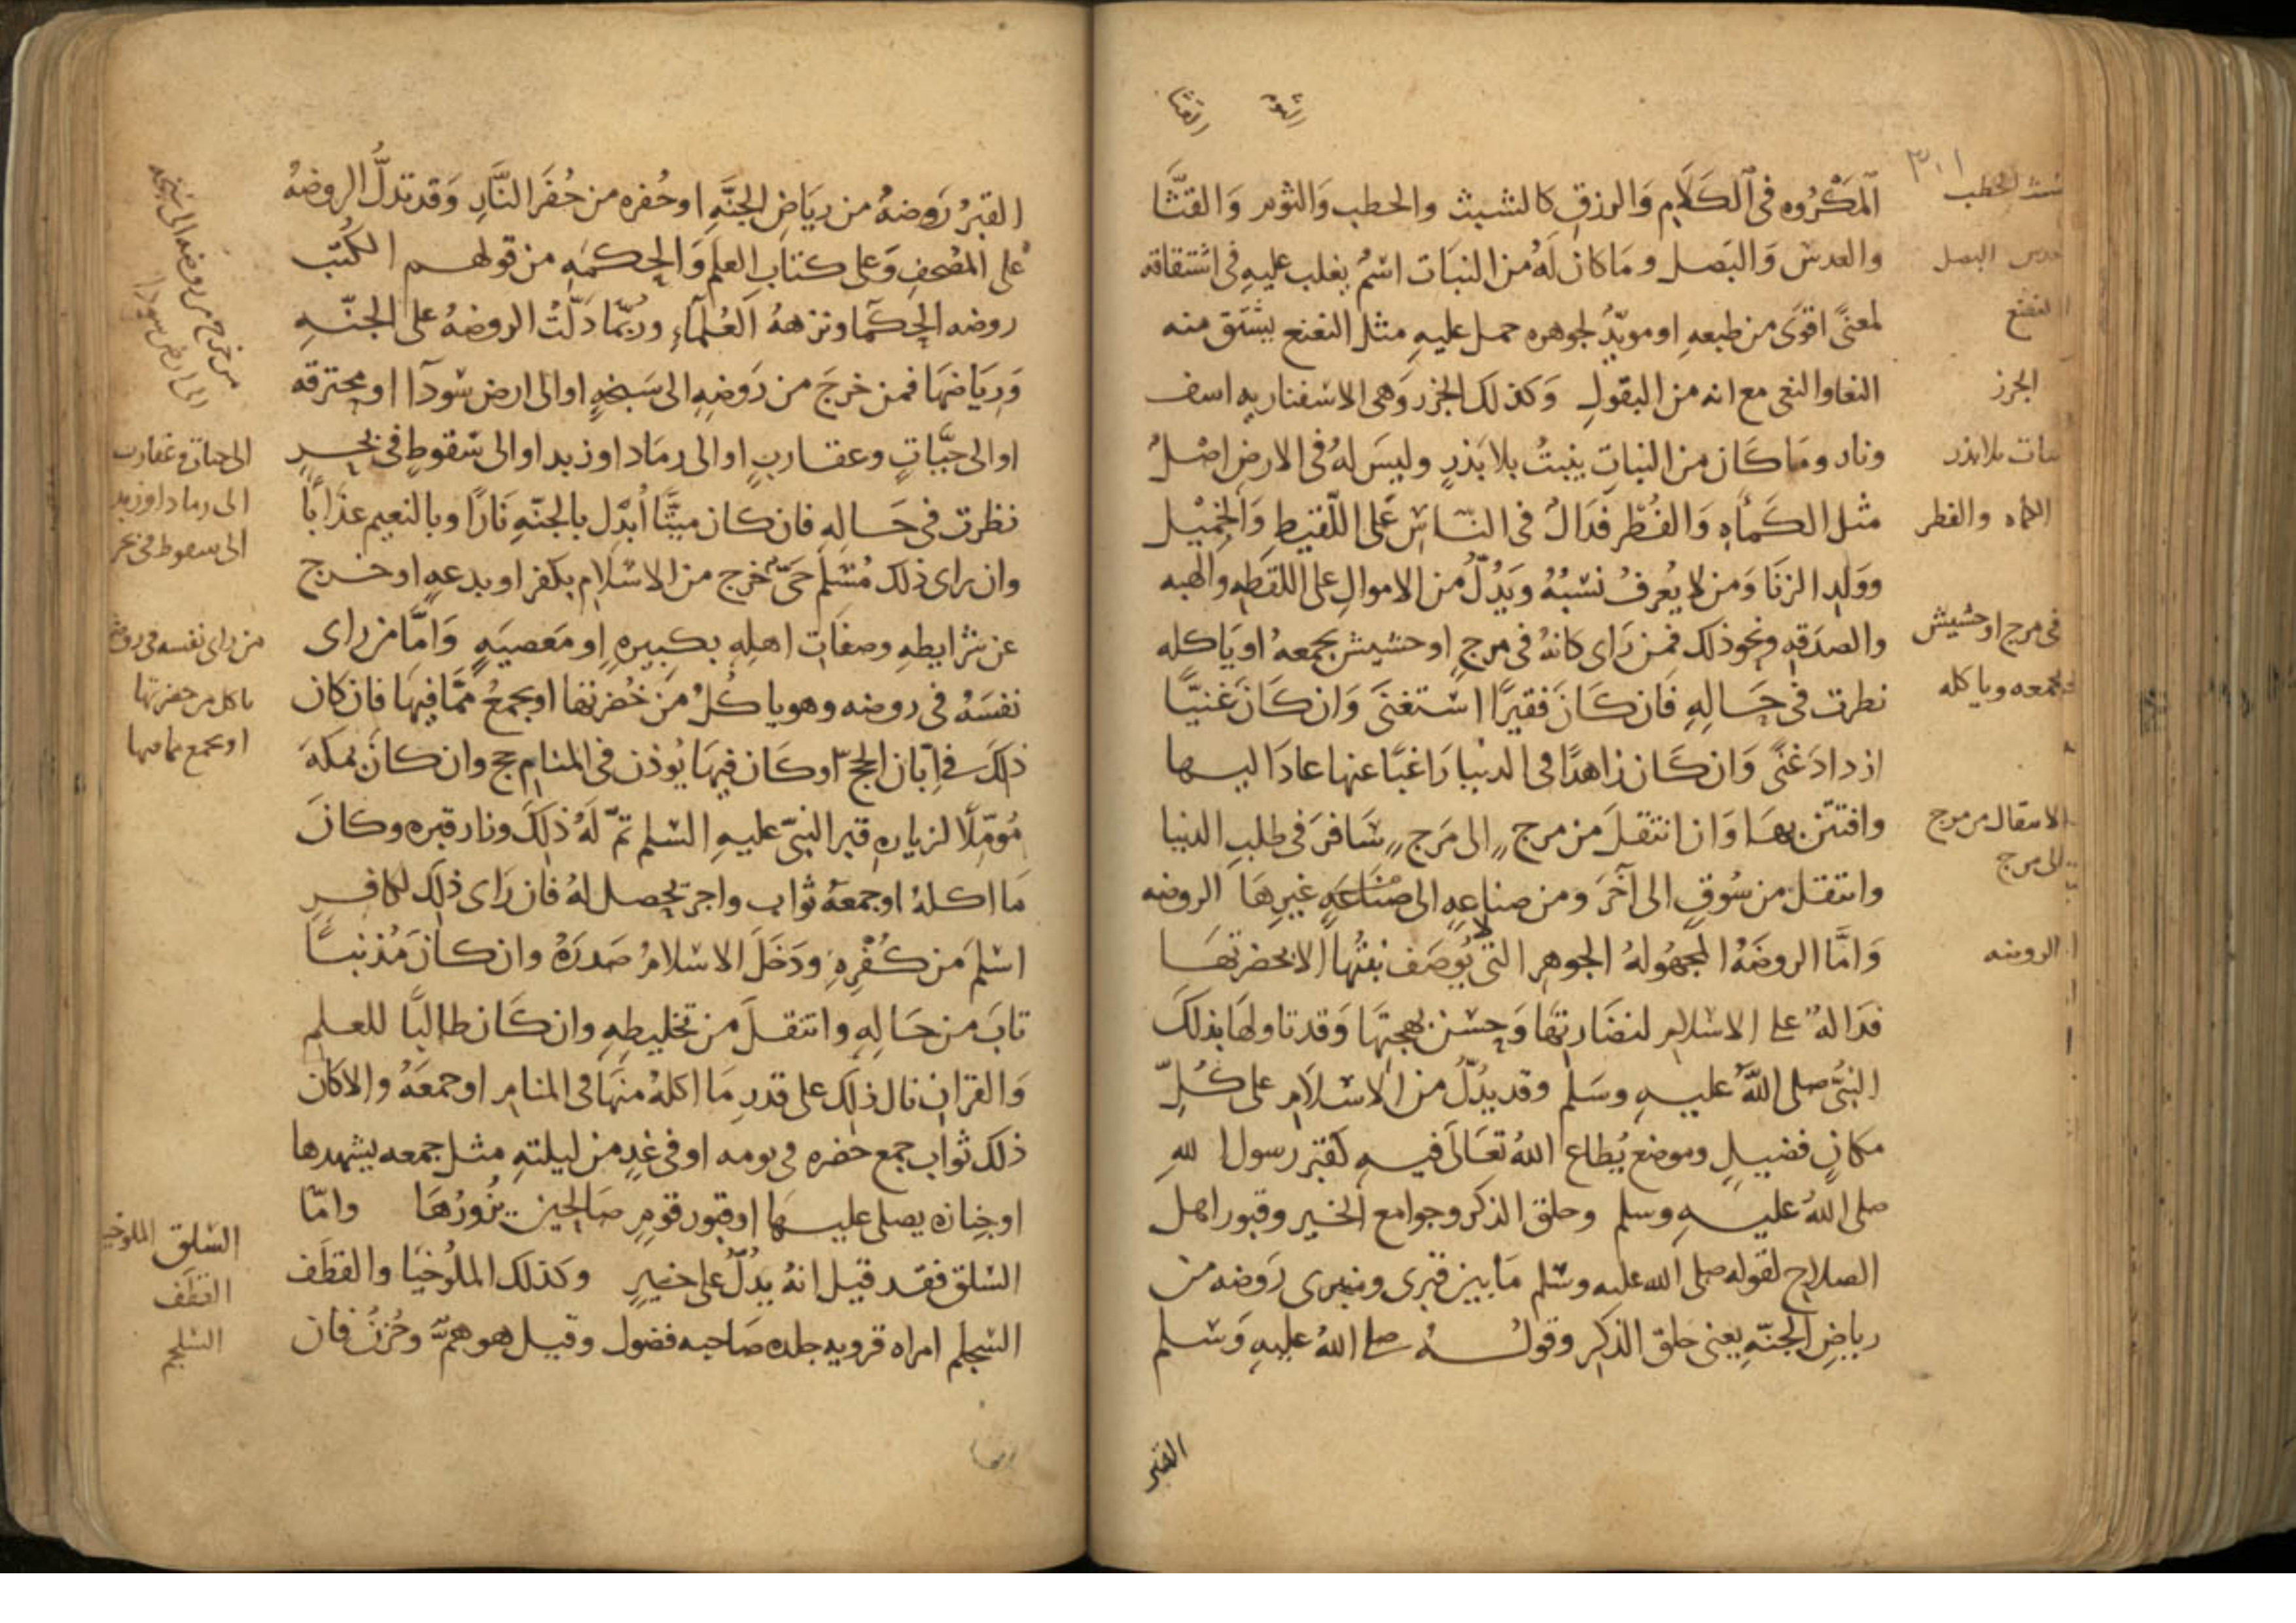 ٣٠١
المَكْرُوه فى الكَلَام وَالرزق كالشبث والحطب وَالثوم وَالقثَّا
والعدس وَالبَصل ومَا كان لَهُ من النبَات اسمٌ يغلب عليهِ فى اشتقاقه
لمعنًى اقوى من طبعهِ او مويّدٌ لجوهره حمل عليهِ مثل النعنع يشتق منه
النعا والنعى مع انه من البقولِ وَكذلك الجزر وَهى الاسفناريه اسف
ونار ومَا كَان من النباتِ ينبتُ بلا بَذرٍ وليسَ لهُ فى الارض اصْلٌ
مثل الكَمأه وَالفُطْر فَدَالٌ فى النّاس عَلى اللّقيطِ وَالحَمِيْل
ووَلدِ الزنَا وَمن لا يُعرفُ نسَبُهُ وَيَدُلُّ من الاموالِ على اللقطهِ والهبه
والصدَقهِ ونحو ذلك فمن رَاى كانهُ فى مرجٍ او حشيش يجمعهُ او يَاكله
نظرت فى حَالِهِ فَان كَانَ فَقيرًا استَغنَى وَان كَانَ غَنيًّا
ازدادَ غنًى وَان كَان زاهدًا فى الدنيا رَاغبًا عنها عادَ اليها
وافتتن بهَا وَان انتقلَ من مرج الى مَرج سَافرَ فى طلبِ الدنيا
وانتقل من سُوقٍ الى آخَرَ ومن صناعهٍ الى صنَاعَهٍ غيرِهَا الروضه
وَامَّا الروضَهُ المجهُولهُ الجوهرِ التى لا يُوصَف نبْتُها الا بخضرتهَا
فدَالهٌ على الاسلام لنضَارتهَا وَحسْن بهجتِهَا وَقد تاولهَا بذلك
النبىُّ صلى اللّهُ عليهِ وسَلم وقد يدُلُّ من الاسلَام على كُلِّ
مكانٍ فضيلٍ وموضع يُطاع اللهُ تعَالَى فيهِ كقبر رسول الله
صلى اللهُ عليهِ وسلم وحلق الذكر وجوامع الخير وقبور اهل
الصلاح لقوله صلى الله عليه وسَلم مَا بين قبرى ومنبرى رَوضه من
رياضِ الجنّهِ يعنى حلق الذكِر وقولهُ صلى اللهُ عليهِ وَسَلم
القبر
الحطب
البصل
النعنع
الجزر
نبات بلا بذر
الكماه والفطر
فى مرج او حشيش
يجمعه وياكله
الانتقال من مرج
الى مرج
الروضه
القبرُ رَوضهٌ من ريَاضِ الجنَّهِ او حُفره من حُفَر النَّارِ وَقد تدلُّ الروضهُ
على المصْحفِ وَعلى كتاب العلم وَالحِكمَهِ من قولهم الكُتب
روضه الحكَمَا ونزههُ العُلمَآءِ وربمَّا دَلّتْ الروضهُ على الجنّهِ
وَرِيَاضهَا فمن خرجَ من رَوضهِ الى سَبخهٍ او الى ارض سَودآ او محترقه
او الى حيَّاتٍ وعقاربٍ او الى رمَاد او زبد او الى سقوطٍ فى بحرٍ
نظرت فى حَاله فان كان ميتًا اُبدّل بالجنّهِ نَارًا وبالنعيم عذَابًا
وان راى ذلك مُسْلم حَىّ خرج من الاسلَام بكفر او بدعهٍ او خرج
عن شرايطهِ وصفَات اهلِهِ بكبيره او مَعصيَهٍ وَامَّا من راى
نفسَهُ فى روضه وهو ياكُلُ من خُضرتها او يجمعُ ممَّا فيهَا فان كان
ذلكَ فى اِبّان الحجّ او كَان فيهَا يُوذن فى المنام حج وان كانَ بمكهَ
مُومّلًا لزيارهِ قبر النبىّ عليهِ السَلم تمّ لهُ ذلكَ وزار قبره وكانَ
مَا اكلهُ او جمعهُ ثواب واجر يحصل لهُ فان رَاى ذلك لكافرٍ
اسْلمَ من كُفْرِهِ ودَخَلَ الاسلامُ صَدرَهُ وان كانَ مُذنبًا
تابَ من حَالِهِ وانتقلَ من تخليطِهِ وان كَان طالبًا للعلم
وَالقران نال ذلك على قدرِ مَا اكلهُ منهَا فى المنام او جمعَهُ والا كان
ذلك ثواب جمع حضره فى يومه او فى غدٍ من ليلتهِ مثل جمعه يشهدها
او جنازه يصلى عليهَا او قبور قومٍ صَالحين يزُورُهَا وامّا
السَلق فقد قيل انهُ يدُلُّ على خيرٍ وكذلك الملُوخيَا والقطَف
السَلجم امراه قرويه جلده صَاحبه فضول وقيل هو همٌّ وحُزنٌ فان
من خرج من روضه الى سبخه
الى ارض سودا
الى حيات وعقارب
الى رماد او زبد
الى سقوط فى بحر
من راى نفسه فى روضه
ياكل من خضرتها
او يجمع مما فيها
السَلق الملوخيا
القطف
السلجم